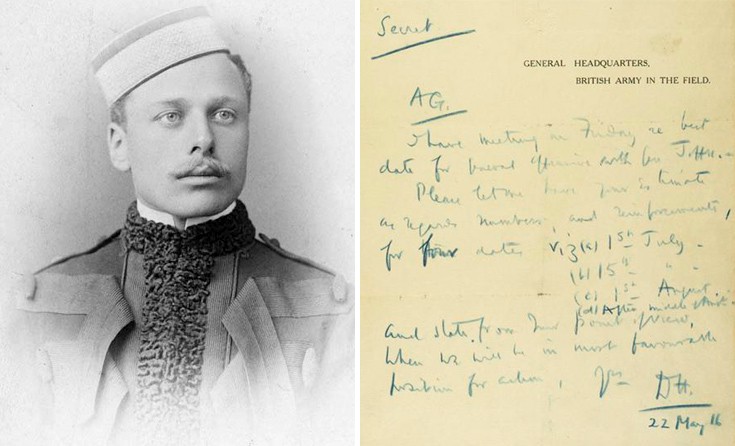 Secret
GENERAL HEADQUARTERS,
BRITISH ARMY IN THE FIELD.
A.G.
I have meeting on Friday re best
date for general offensive with Gen Joffre.—
Please let me have your Estimate
as regards numbers, and reinforcements,
for four dates viz (a) 1st July —
(b) 15th " "
(c) 1st August.
(d) After middle August.
and state from your point of view,
when we will be in most favourable
position for action, Yrs
D.H.
22 May 16